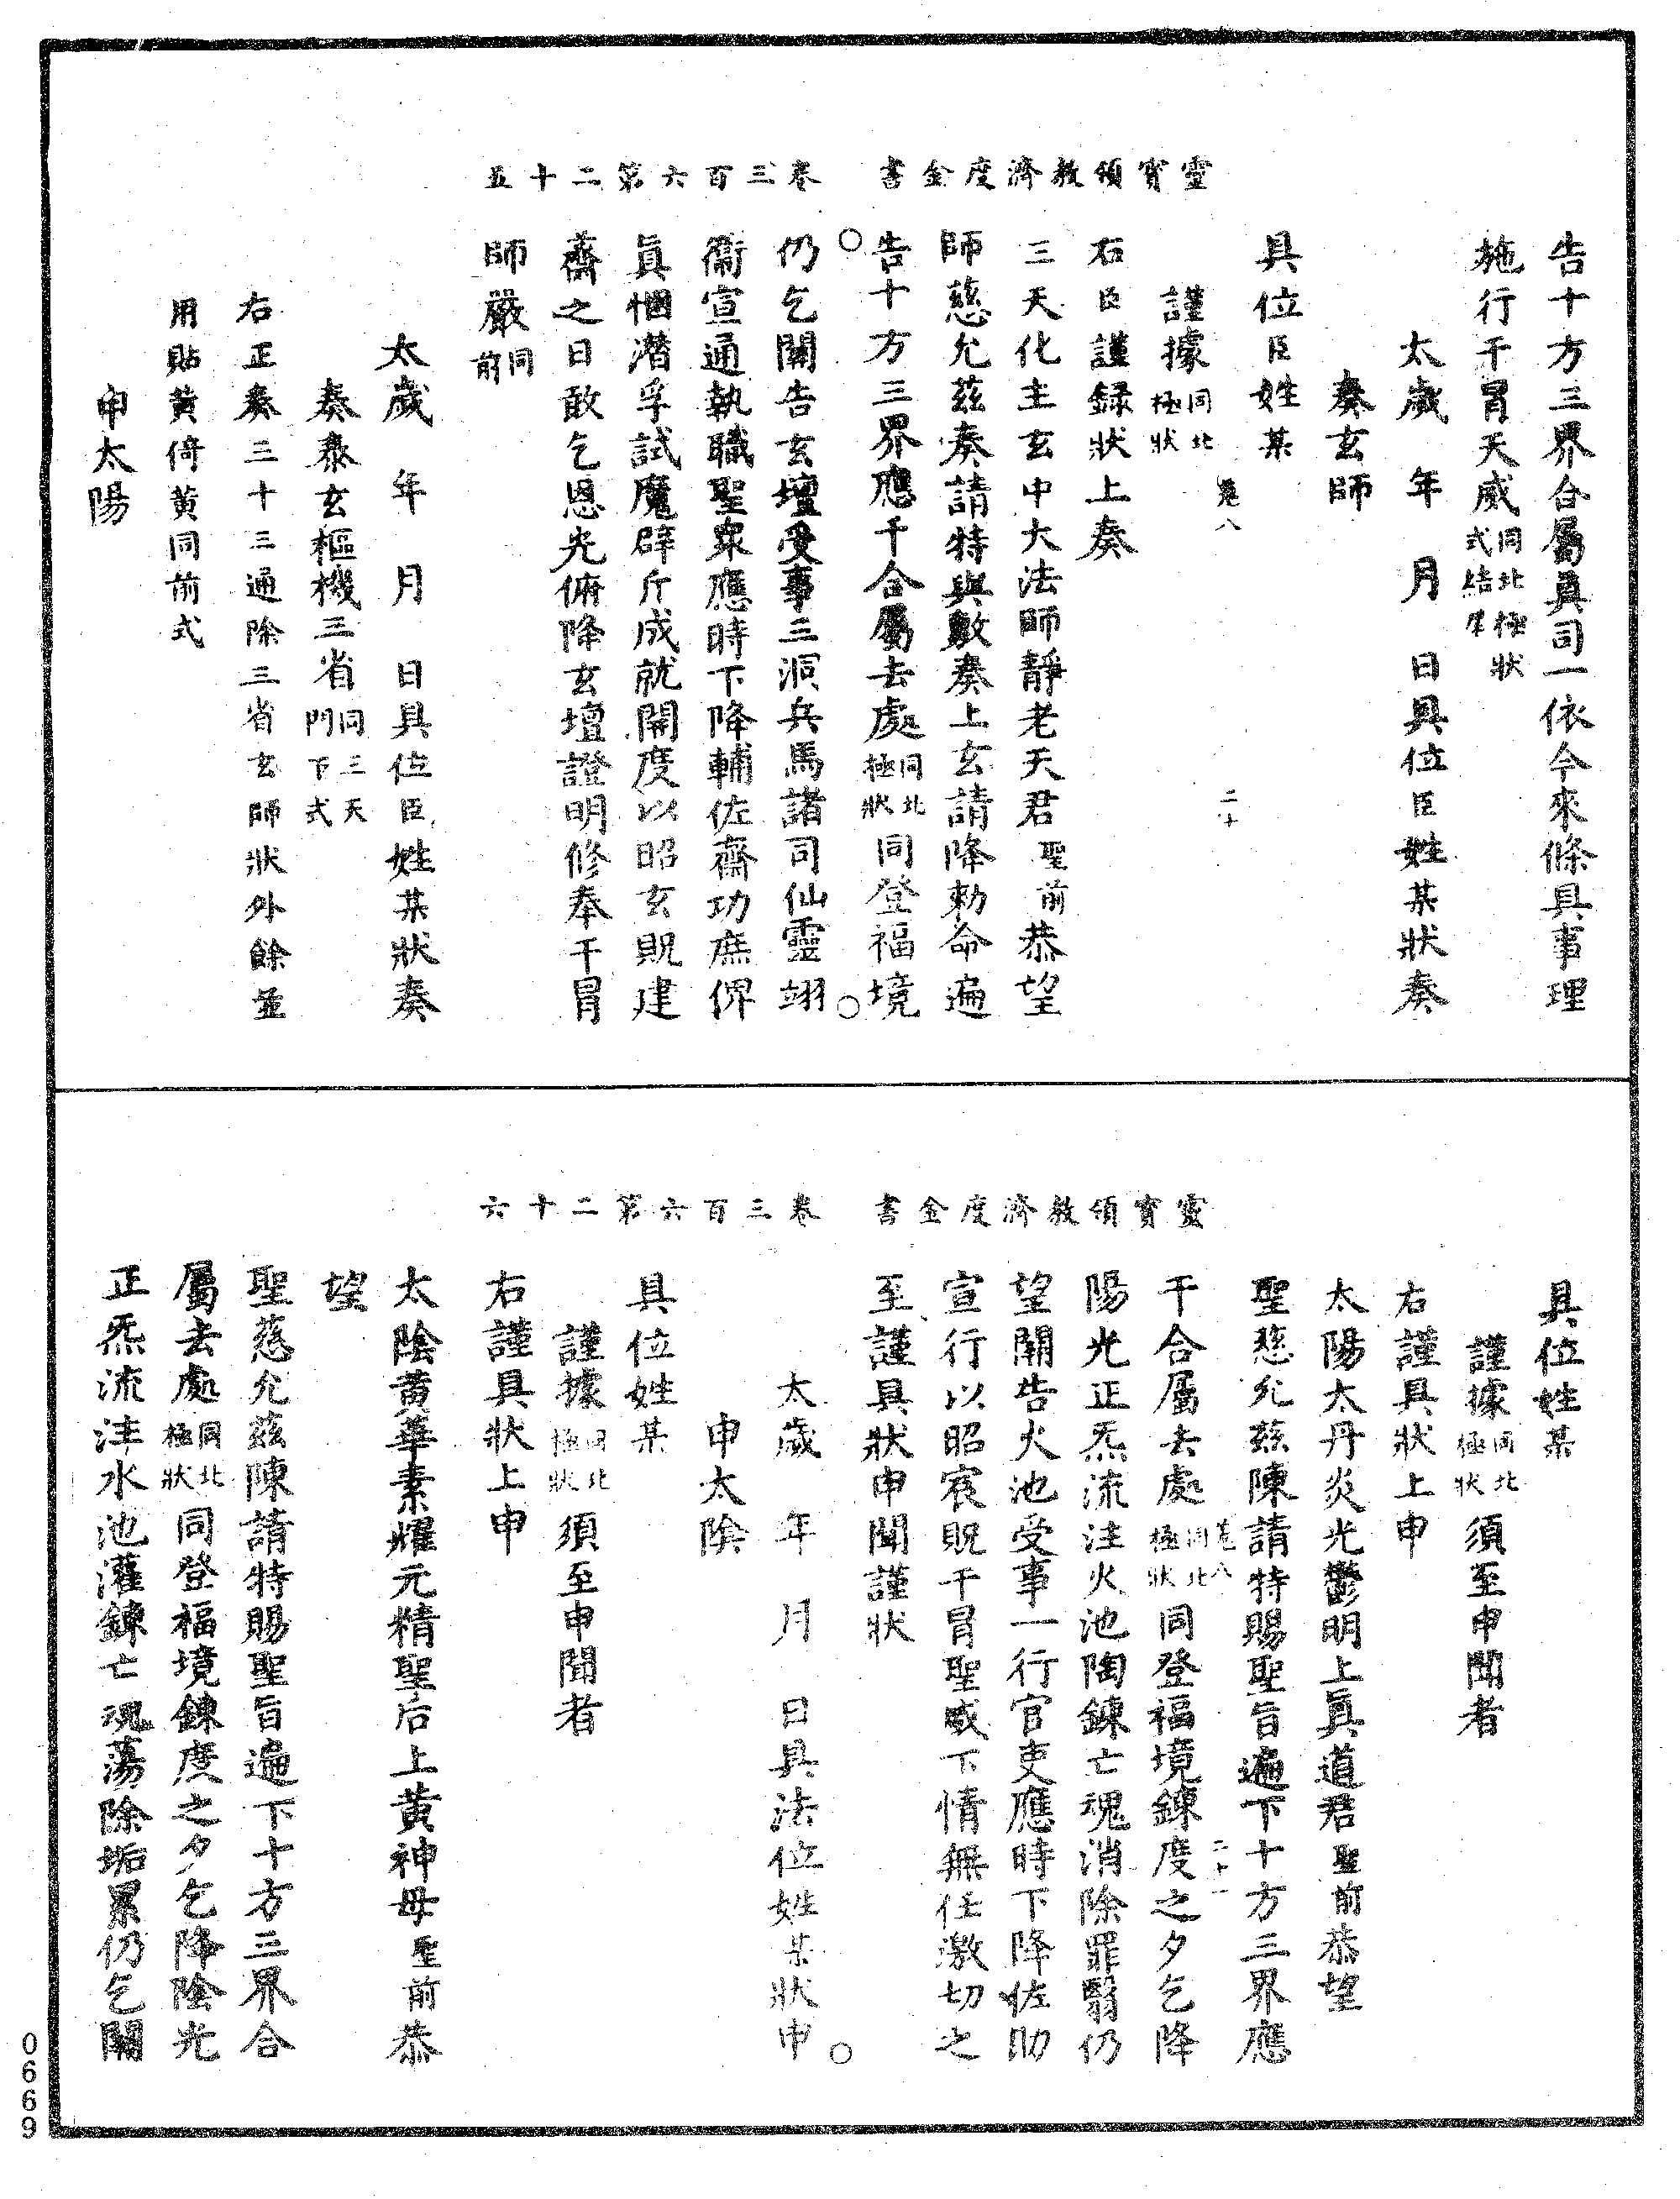 靈寶領教濟度金書　卷三百六第二十五
告十方三界合屬眞司一依今來條具事理
施行干冒天威同北極狀式結尾
太歲　年　月　日具位臣姓某狀奏
奏玄師
具位臣姓某
惪八　二十
謹據同北極狀
右臣謹録狀上奏
三天化主玄中大法師靜老天君聖前恭望
師慈允茲奏請特與敷奏上玄請降勑命遍
告十方三界應干合屬去處同北極狀同登福境
○　○
仍乞關告玄壇受事三洞兵馬諸司仙靈翊
衞宣通執職聖衆應時下降輔佐齋功庶俾
眞悃潛孚試魔辟斥成就開度以昭玄貺建
齋之日敢乞恩光俯降玄壇證明修奉干冒
師嚴同前
太歲　年　月　日具位臣姓某狀奏
奏泰玄樞機三省同三天門下式
右正奏三十三通除三省玄師狀外餘並
用貼黄倚黄同前式
申太陽
靈寶領教濟度金書　卷三百六第二十六
具位姓某
謹據同北極狀須至申聞者
右謹具狀上申
太陽太丹炎光鬱明上眞道君聖前恭望
聖慈允茲陳請特賜聖旨遍下十方三界應
惪八　二十一
干合屬去處同北極狀同登福境鍊度之夕乞降
陽光正炁流注火池陶鍊亡魂消除罪翳仍
望關告火池受事一行官吏應時下降佐助
宣行以昭宸貺干冒聖威下情無任激切之
至謹具狀申聞謹狀
○
太歲　年　月　日具法位姓某狀申
申太陰
具位姓某
謹據同北極狀須至申聞者
右謹具狀上申
太陰黄華素耀元精聖后上黄神母聖前恭
望
聖慈允茲陳請特賜聖旨遍下十方三界合
屬去處同北極狀同登福境鍊度之夕乞降陰光
正炁流注水池灌鍊亡魂蕩除垢累仍乞關
0669